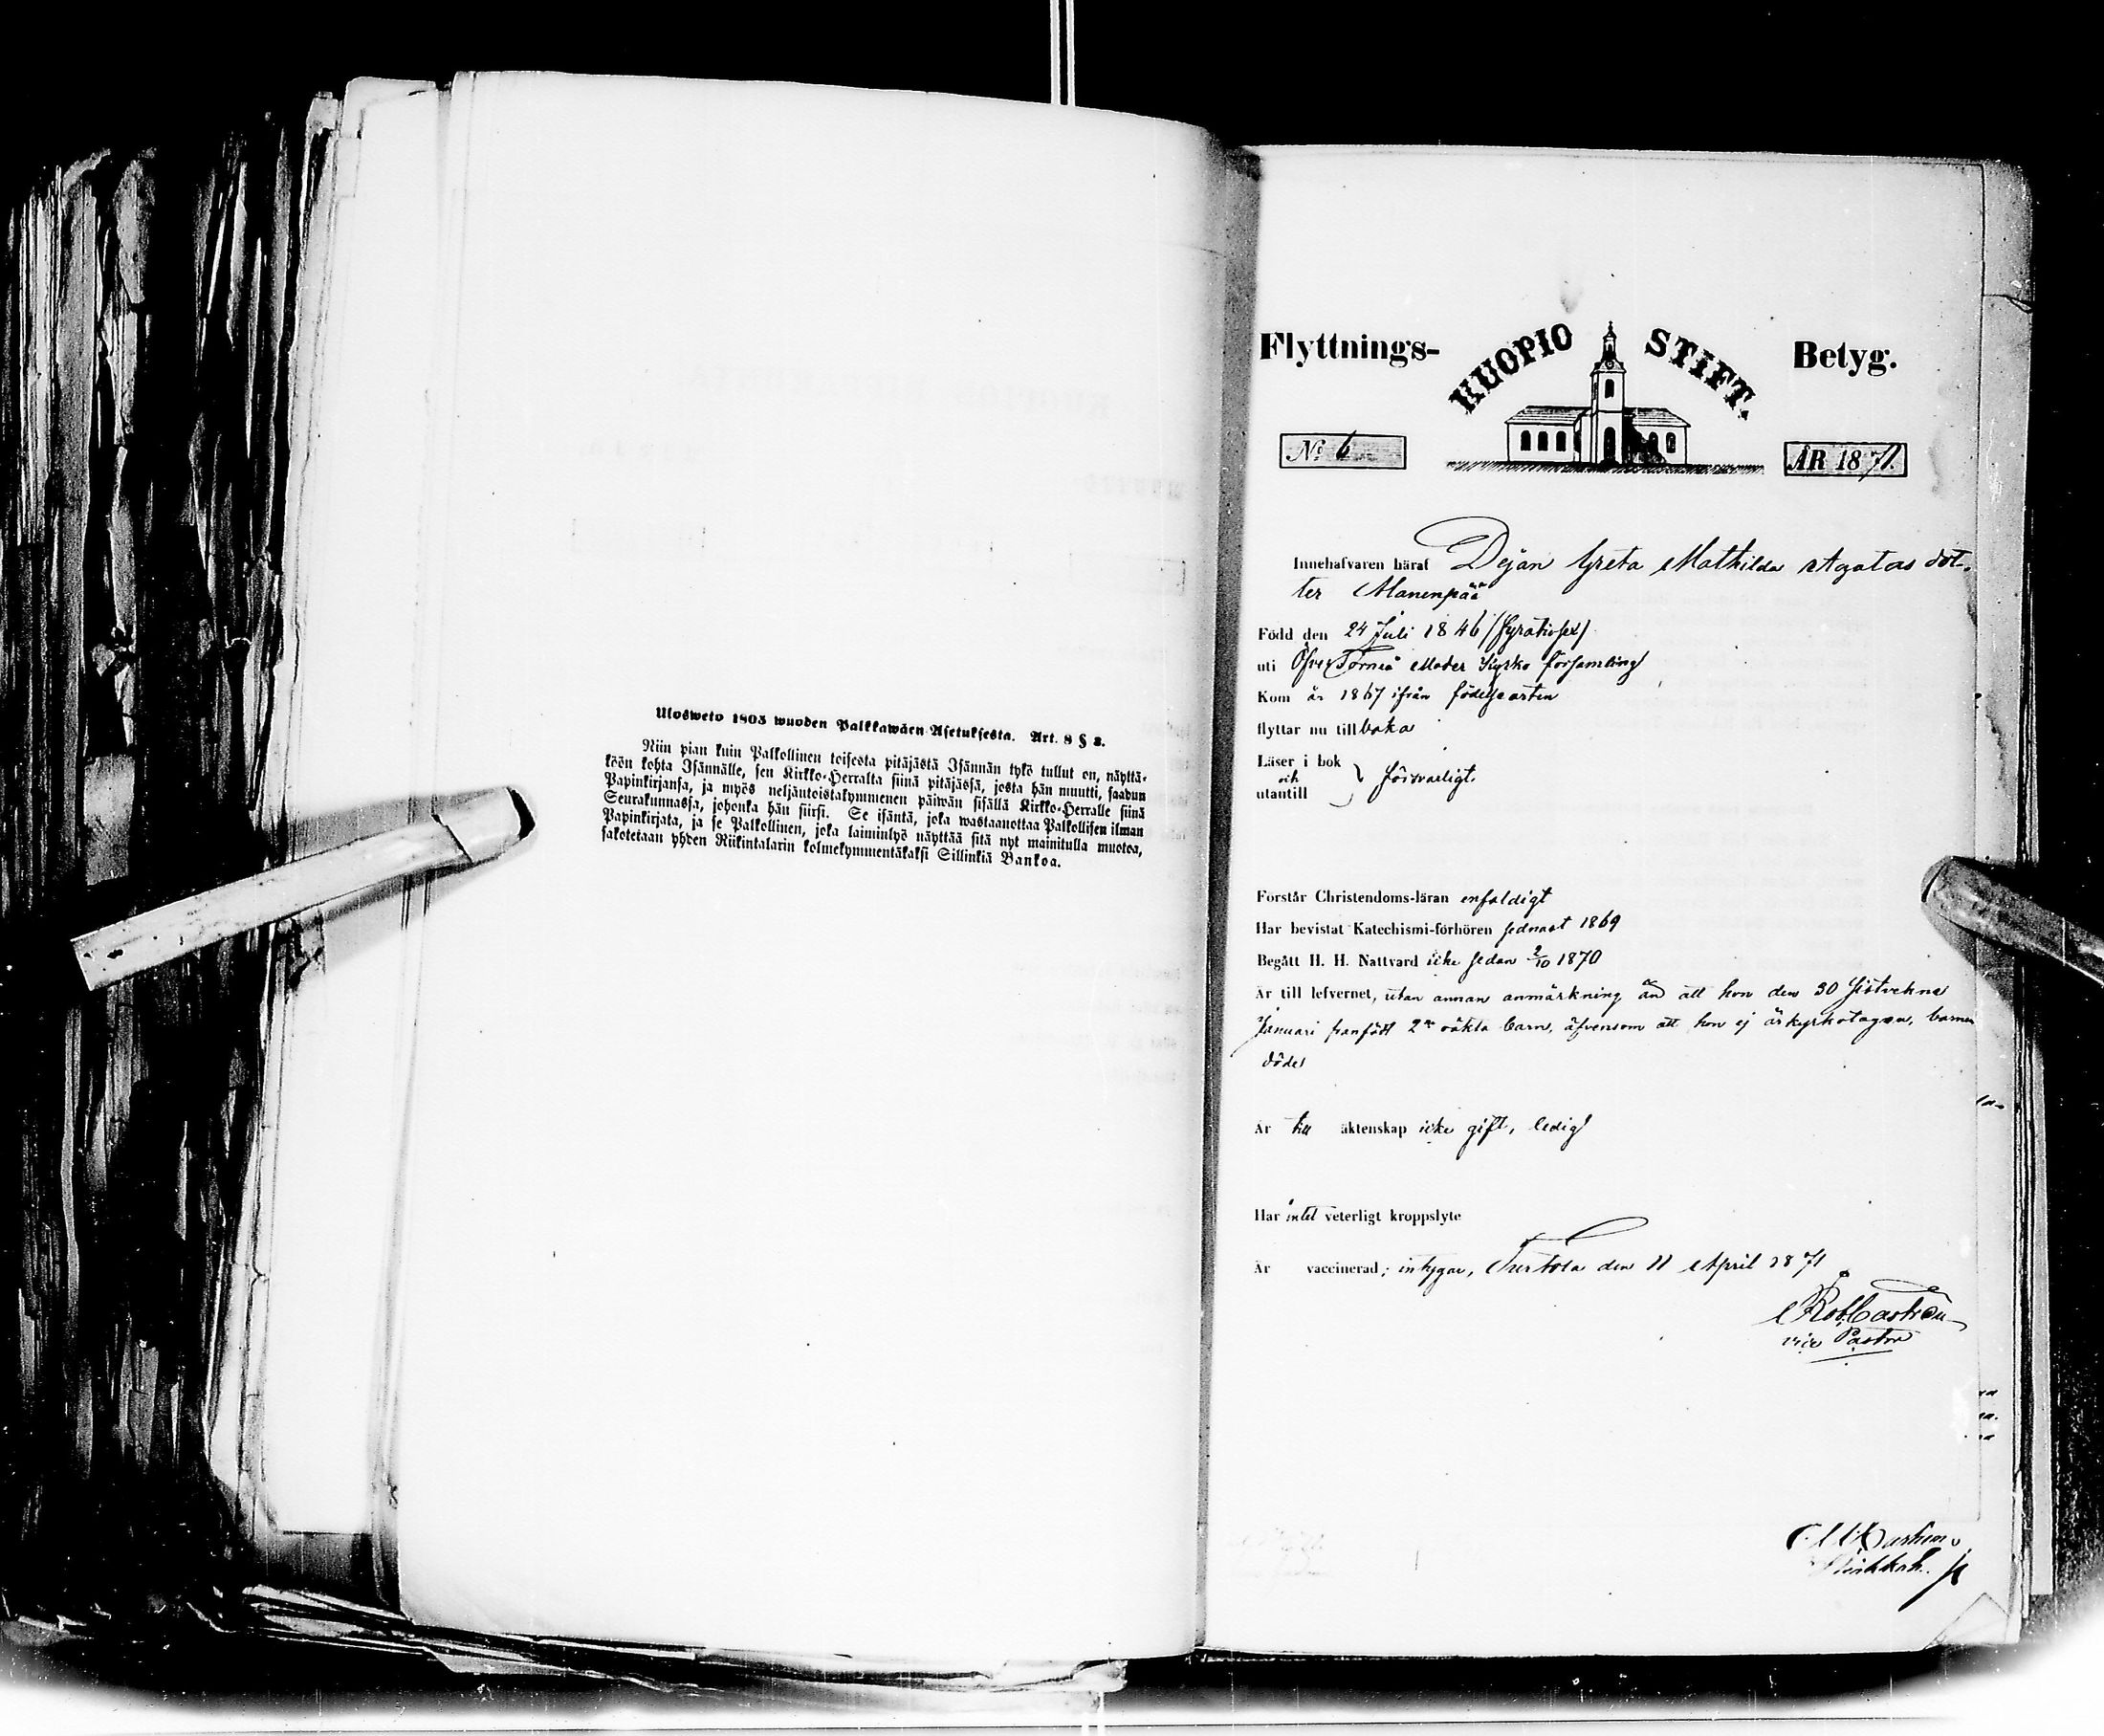 Ulosweto 1805 wuoden Palkkawäen Asetuksesta. Art. 8 § 2.
Niin pian kuin Palkollinen toisesta pitäjästä Isännän tykö tullut on, näyttä-
köön kohta Isännälle, sen Kirkko-Herralta siinä pitäjässä, josta hän muutti, saadun
Papinkirjansa, ja myös neljäntoistakymmenen päiwän sisällä Kirkko-Herralle siinä
Seurakunnassa, johonka hän siirsi. Se isäntä, joka wastaanottaa Palkollisen ilman
Papinkirjata, ja se Palkollinen, joka laiminlyö näyttää sitä nyt mainitulla muotoa,
sakotetaan yhden Riikintalarin kolmekymmentäkaksi Sillinkiä Bankoa.
Flyttnings- KUOPIO STIFT. Betyg.
No 6 ÅR 1871.
Innehafvaren häraf Dejan Greta Mathilda Agatas dot-
ter Alanenpää
Född den 24 Juli 1846 (fyratiosex)
uti Öfver Torneå Moder Kyrko församling
Kom år 1867 ifrån födelseorten
flyttar nu till baka
Läser i bok
och } försvarligt.
utantill
Förstår Christendoms-läran enfaldigt
Har bevistat Katechismi-förhören sednast 1869
Begått H. H. Nattvard icke sedan 2/10 1870
Är till lefvernet, utan annan anmärkning än att hon den 30 sistvekne
Januari framfödt 2ne oäkta barn, äfvensom att hon ej är kyrkotagen, barnen
döde
Är till äktenskap icke gift, ledig
Har intet veterligt kroppslyte
Är vaccinerad; intygar, Turtola den 11 April 1871
Rob. Castrén
vice Pastor